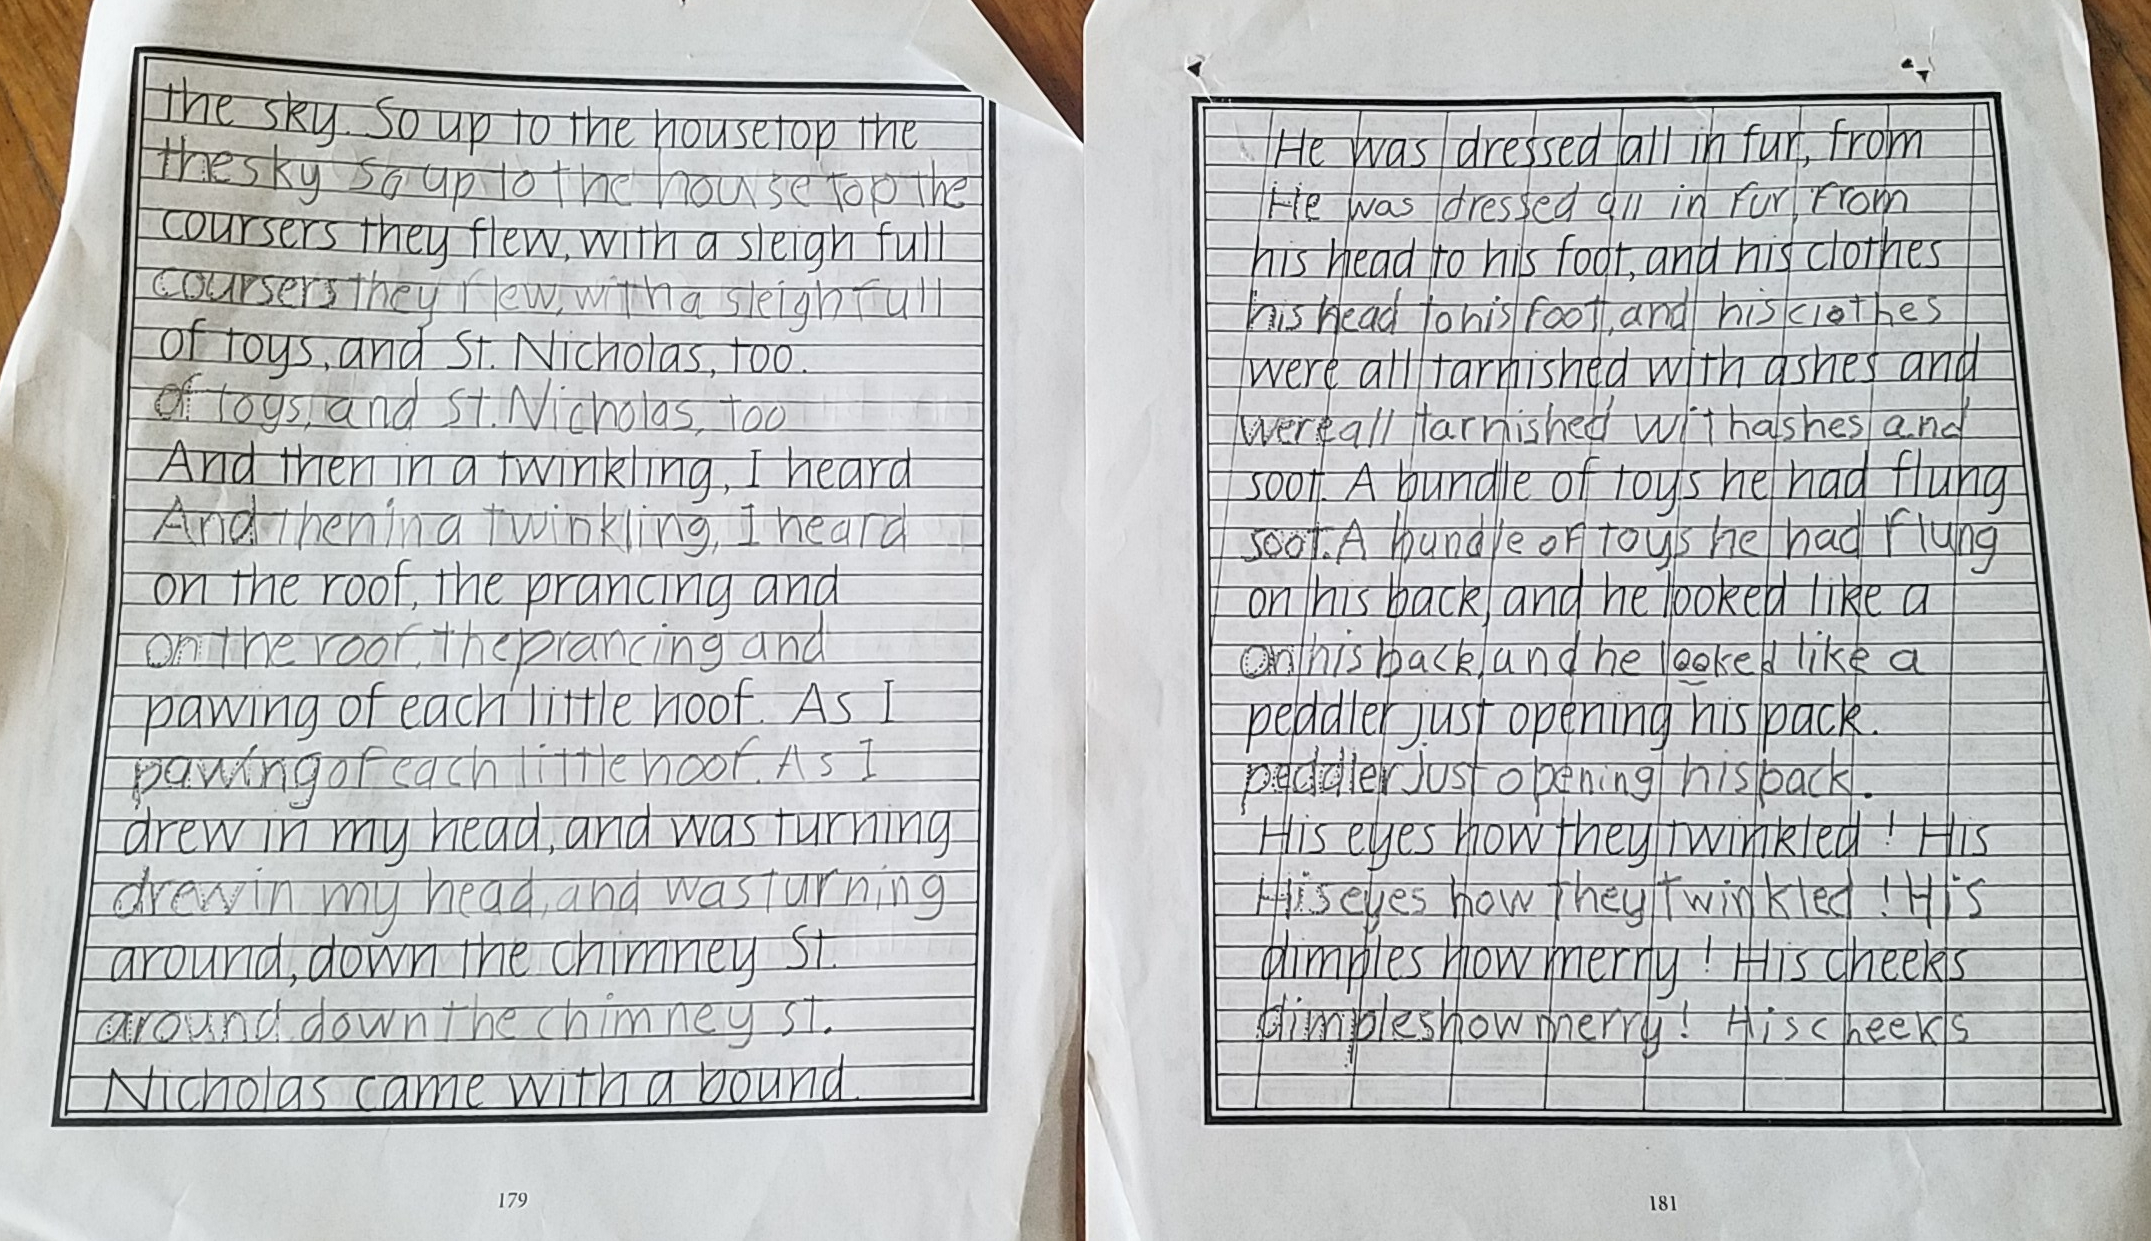 the sky. So up to the housetop the
the sky So up to the house top the
coursers they flew, with a sleigh full
coursers they flew, with a sleigh full
of toys, and St. Nicholas, too.
of toys, and St. Nicholas, too
And then in a twinkling, I heard
And then in a twinkling, I heard
on the roof, the prancing and
on the roof, the prancing and
pawing of each little hoof. As I
pawing of each little hoof. As I
drew in my head, and was turning
drew in my head, and was turning
around, down the chimney St.
around down the chimney st.
Nicholas came with a bound.
179
He was dressed all in fur, from
He was dressed all in fur, from
his head to his foot, and his clothes
his head to his foot, and his clothes
were all tarnished with ashes and
were all tarnished with ashes and
soot. A bundle of toys he had flung
soot. A bundle of toys he had flung
on his back, and he looked like a
on his back, and he looked like a
peddler just opening his pack.
peddler just opening his pack.
His eyes how they twinkled! His
His eyes how they twinkled! His
dimples how merry! His cheeks
dimples how merry! His cheeks
181